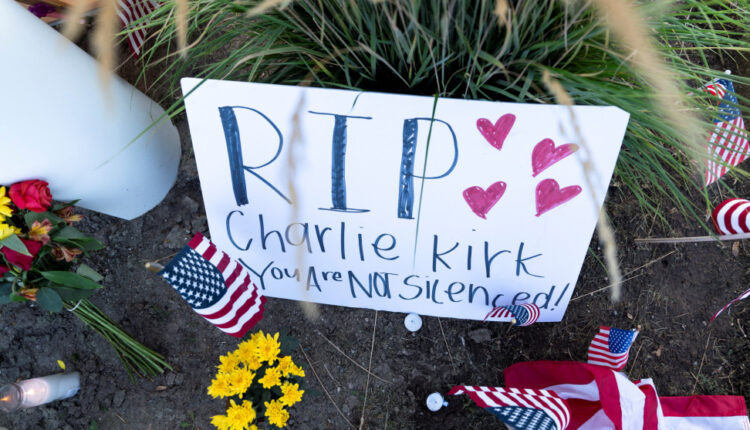 RIP
Charlie Kirk
You Are Not Silenced!